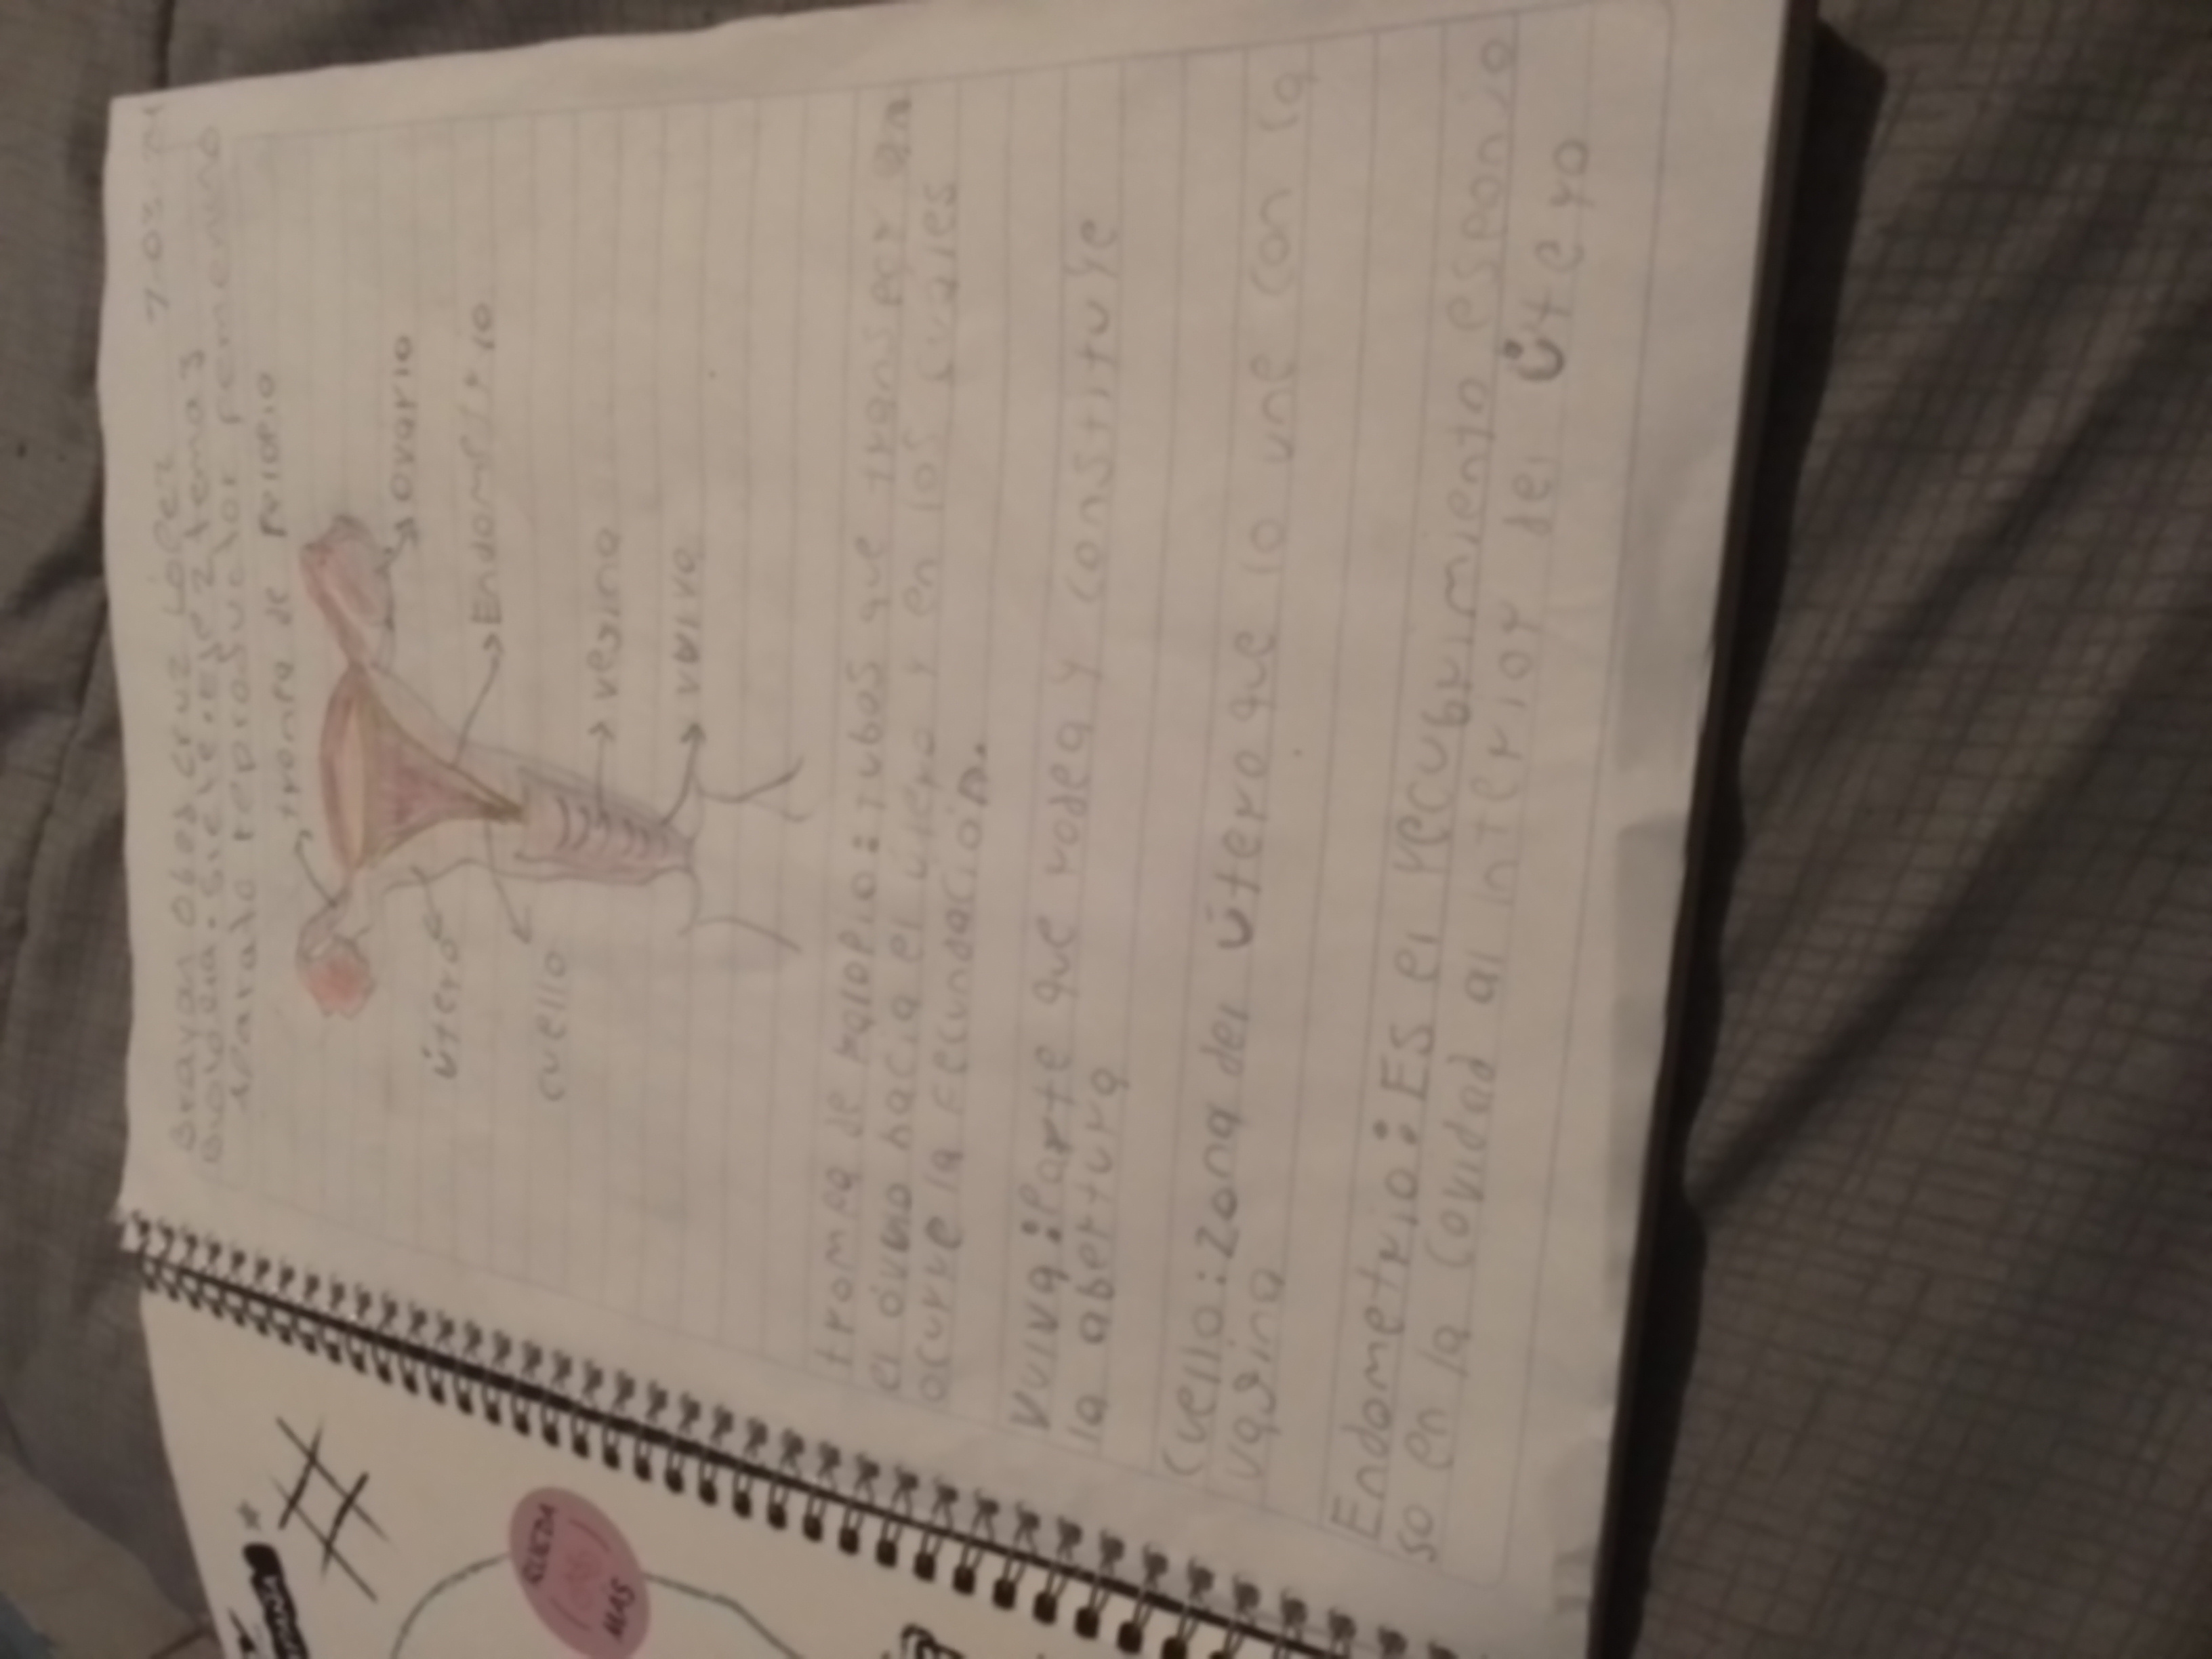 Brayan Obed Cruz López 7-03-24
trompa de Falopio
ovario
Endometrio
útero
cuello
vagina
vulva
trompa de Falopio: tubos que
el óvulo hacia el útero y en los cuales
ocurre la Fecundación.
Vulva: Parte que rodea y constituye
la abertura
Cuello: Zona del útero que lo une con la
vagina
Endometrio: Es el recubrimiento esponjo
so en la cavidad al interior del útero
RUEDA
MAS